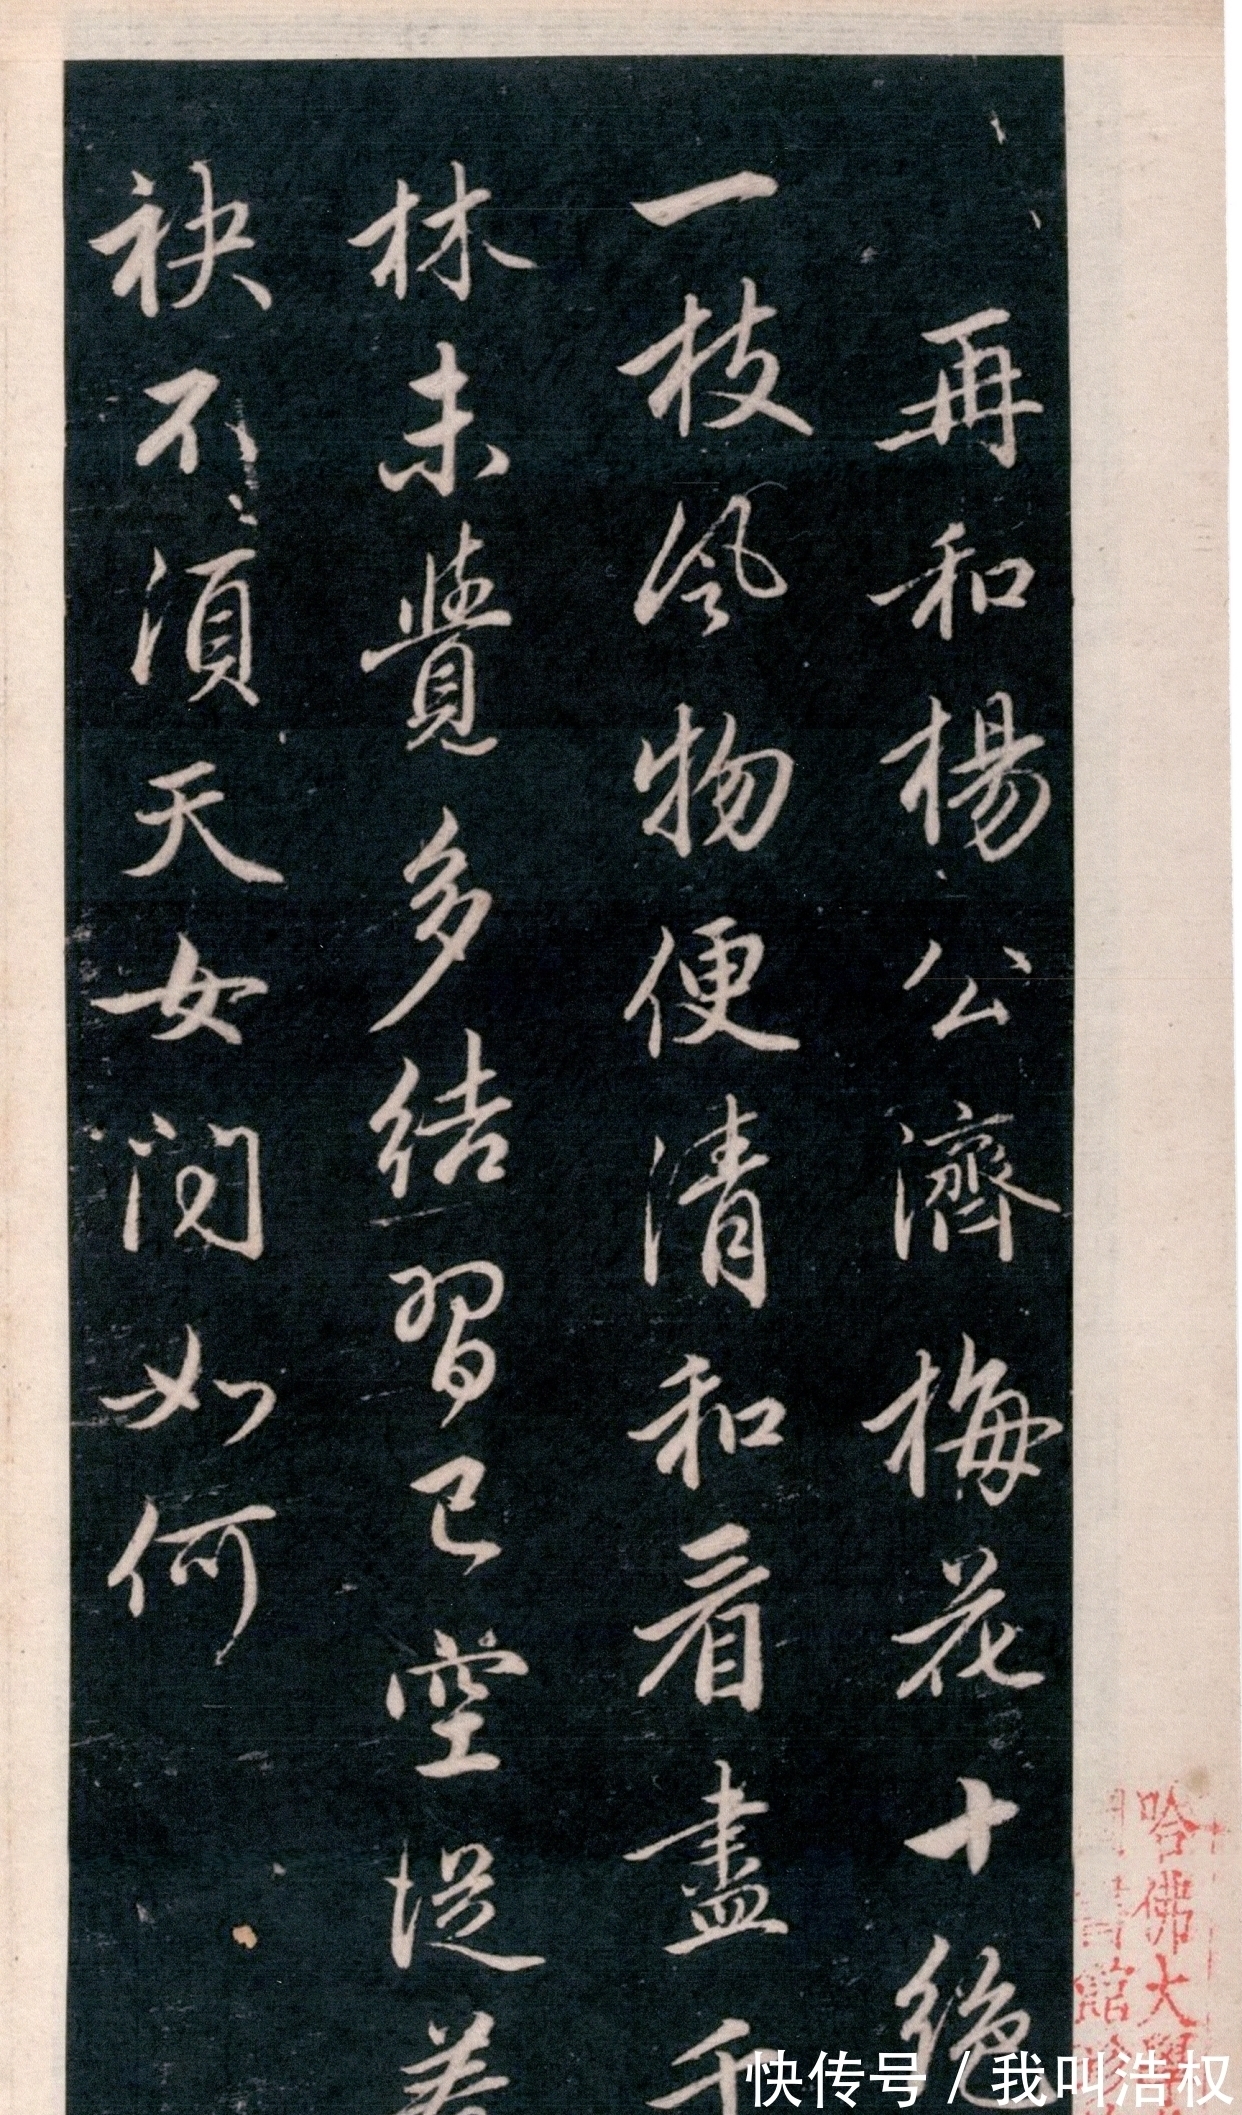 再和楊公濟梅花十絕
一枝風物便清和看盡千
林未覺多結習已空從著
袂不須天女問如何
哈佛大學
快传号 / 我叫浩权